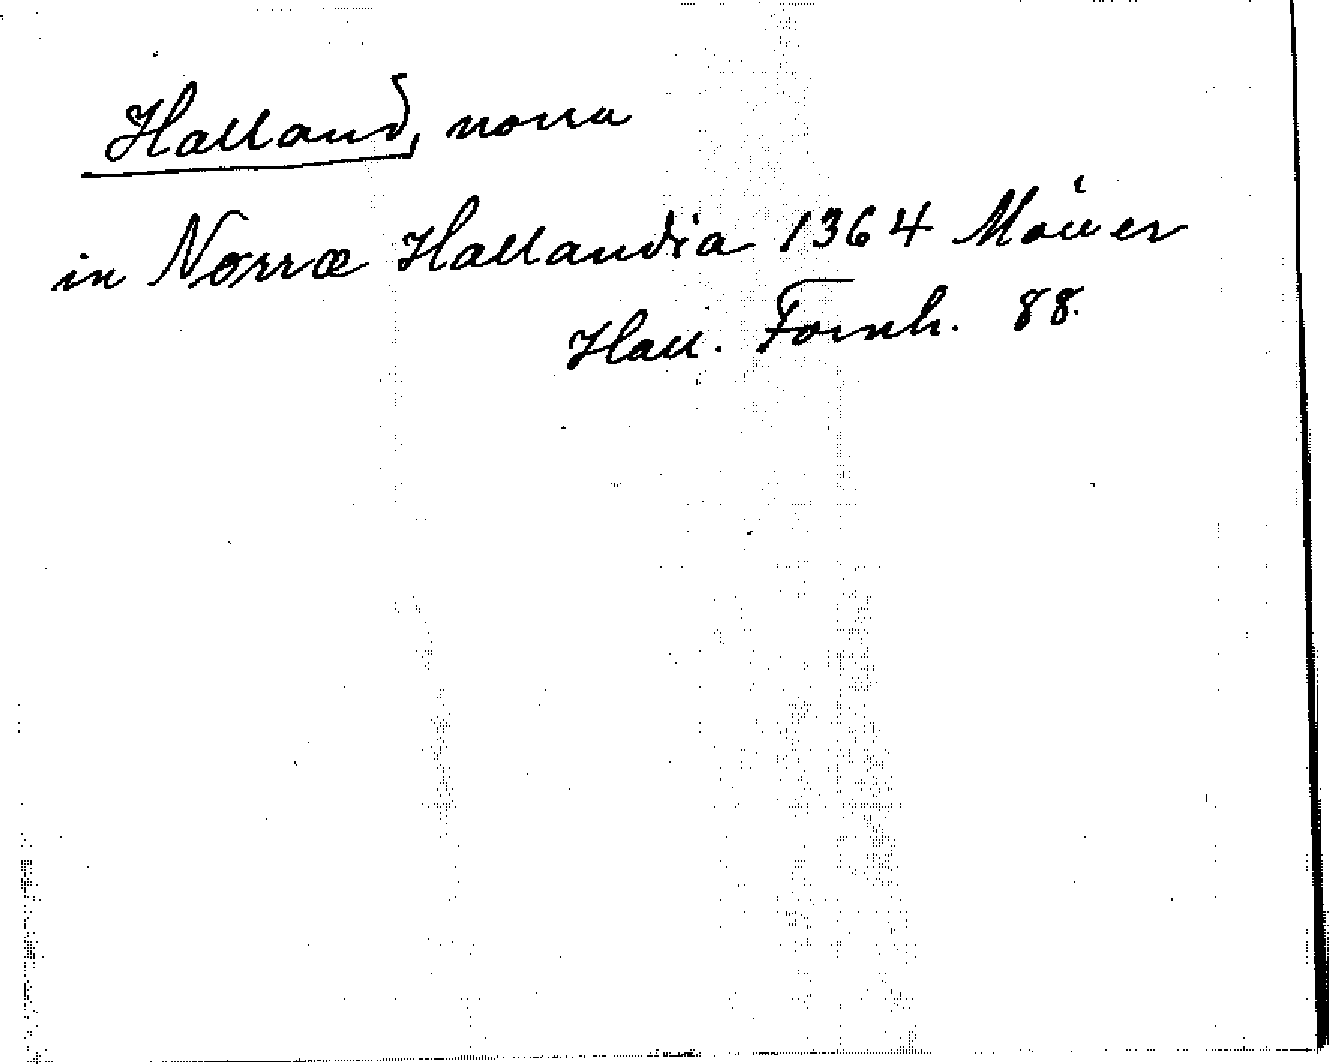 Halland, norra
in Norræ Hallandia 1364 Möller
Hall. Fornh. 88.